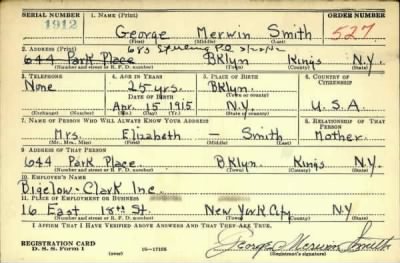 SERIAL NUMBER 1. NAME (Print) ORDER NUMBER
1912 George Merwin Smith 527
(First) (Middle) (Last)
2. ADDRESS (Print)
644 Park Place BKlyn Kings N.Y.
(Number and street or R. F. D. number) (Town) (County) (State)
3. TELEPHONE 4. AGE IN YEARS 5. PLACE OF BIRTH 6. COUNTRY OF CITIZENSHIP
None 25 yrs. BKlyn.
DATE OF BIRTH (Town or county)
Apr. 15 1915 N.Y. U.S.A.
(Mo.) (Day) (Yr.) (State or country)
7. NAME OF PERSON WHO WILL ALWAYS KNOW YOUR ADDRESS 8. RELATIONSHIP OF THAT PERSON
Mrs. Elizabeth — Smith Mother
(Mr., Mrs., Miss) (First) (Middle) (Last)
9. ADDRESS OF THAT PERSON
644 Park Place. BKlyn. Kings N.Y.
(Number and street or R. F. D. number) (Town) (County) (State)
10. EMPLOYER'S NAME
Bigelow-Clark Inc.
11. PLACE OF EMPLOYMENT OR BUSINESS
16 East 18th St. New York City NY
(Number and street or R. F. D. number) (Town) (County) (State)
I AFFIRM THAT I HAVE VERIFIED ABOVE ANSWERS AND THAT THEY ARE TRUE.
REGISTRATION CARD George Merwin Smith
D. S. S. Form 1 (over) 16—17105 (Registrant's signature)